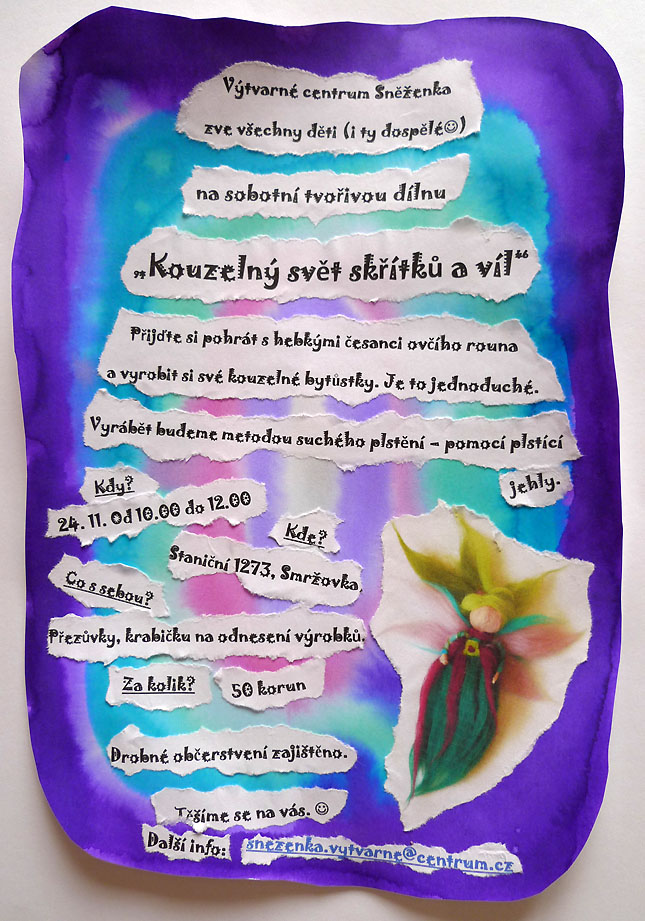 Výtvarné centrum Sněženka
zve všechny děti (i ty dospělé☺)
na sobotní tvořivou dílnu
„Kouzelný svět skřítků a víl“
Přijďte si pohrát s hebkými česanci ovčího rouna
a vyrobit si své kouzelné bytůstky. Je to jednoduché.
Vyrábět budeme metodou suchého plstění – pomocí plstící
jehly.
Kdy?
24. 11. Od 10.00 do 12.00
Kde?
Staniční 1273, Smržovka
Co s sebou?
Přezůvky, krabičku na odnesení výrobků.
Za kolik?
50 korun
Drobné občerstvení zajištěno.
Těšíme se na vás. ☺
Další info:
snezenka.vytvarne@centrum.cz